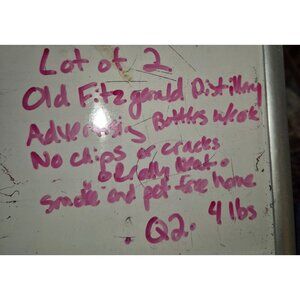 Lot of 2
Old Fitzgerald Distillery
Advertising Bottles
No chips or cracks
Really neat.
smoke and pet free home
4 lbs
Q2.